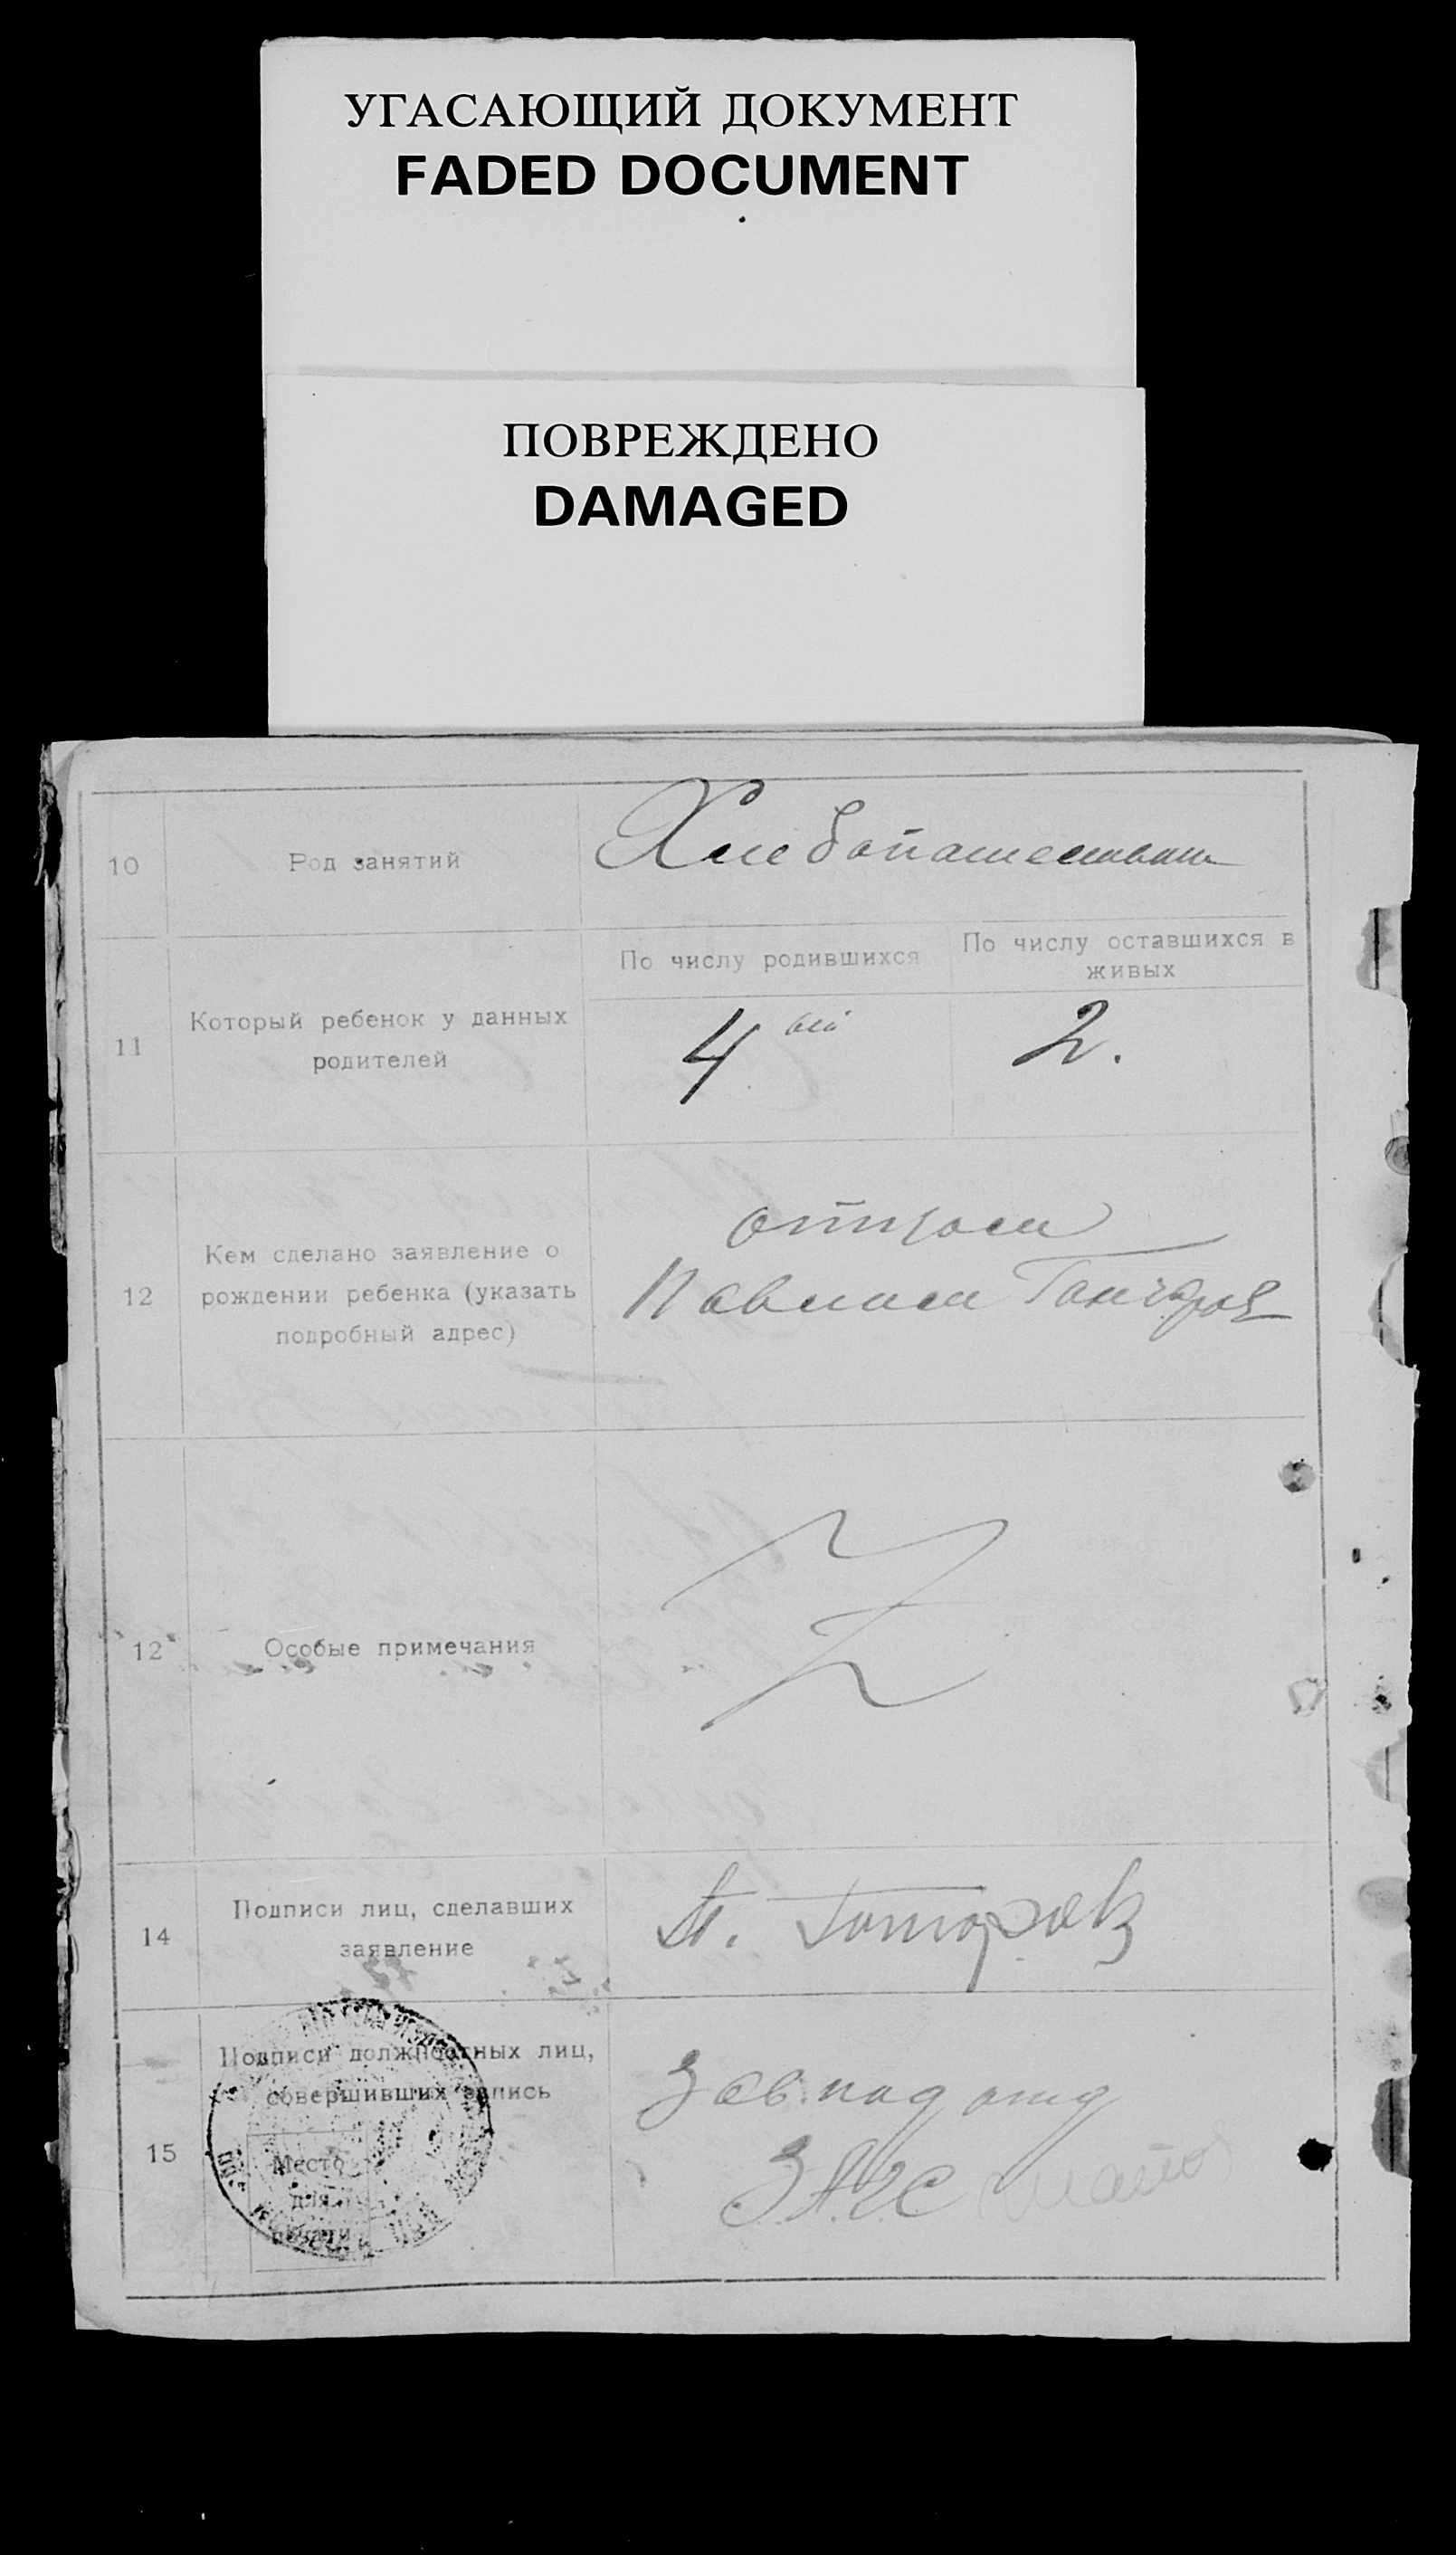 УГАСАЮЩИЙ ДОКУМЕНТ
FADED DOCUMENT
ПОВРЕЖДЕНО
DAMAGED
10
Род занятий
11
Который ребенок у данных
родителей
По числу родившихся
По числу оставшихся в
живых
4 ый
2.
12
Кем сделано заявление о
рождении ребенка (указать
подробный адрес)
отцом
Павлом
12
Особые примечания
14
Подписи лиц, сделавших
заявление
15
Подписи должностных лиц,
совершивших запись
Место
для
печати
Зав. под отд
ЗАГС